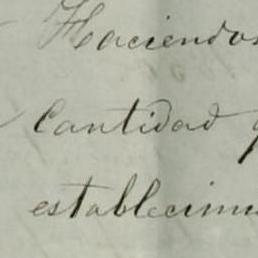 Haciendos
Cantidad q
establecim